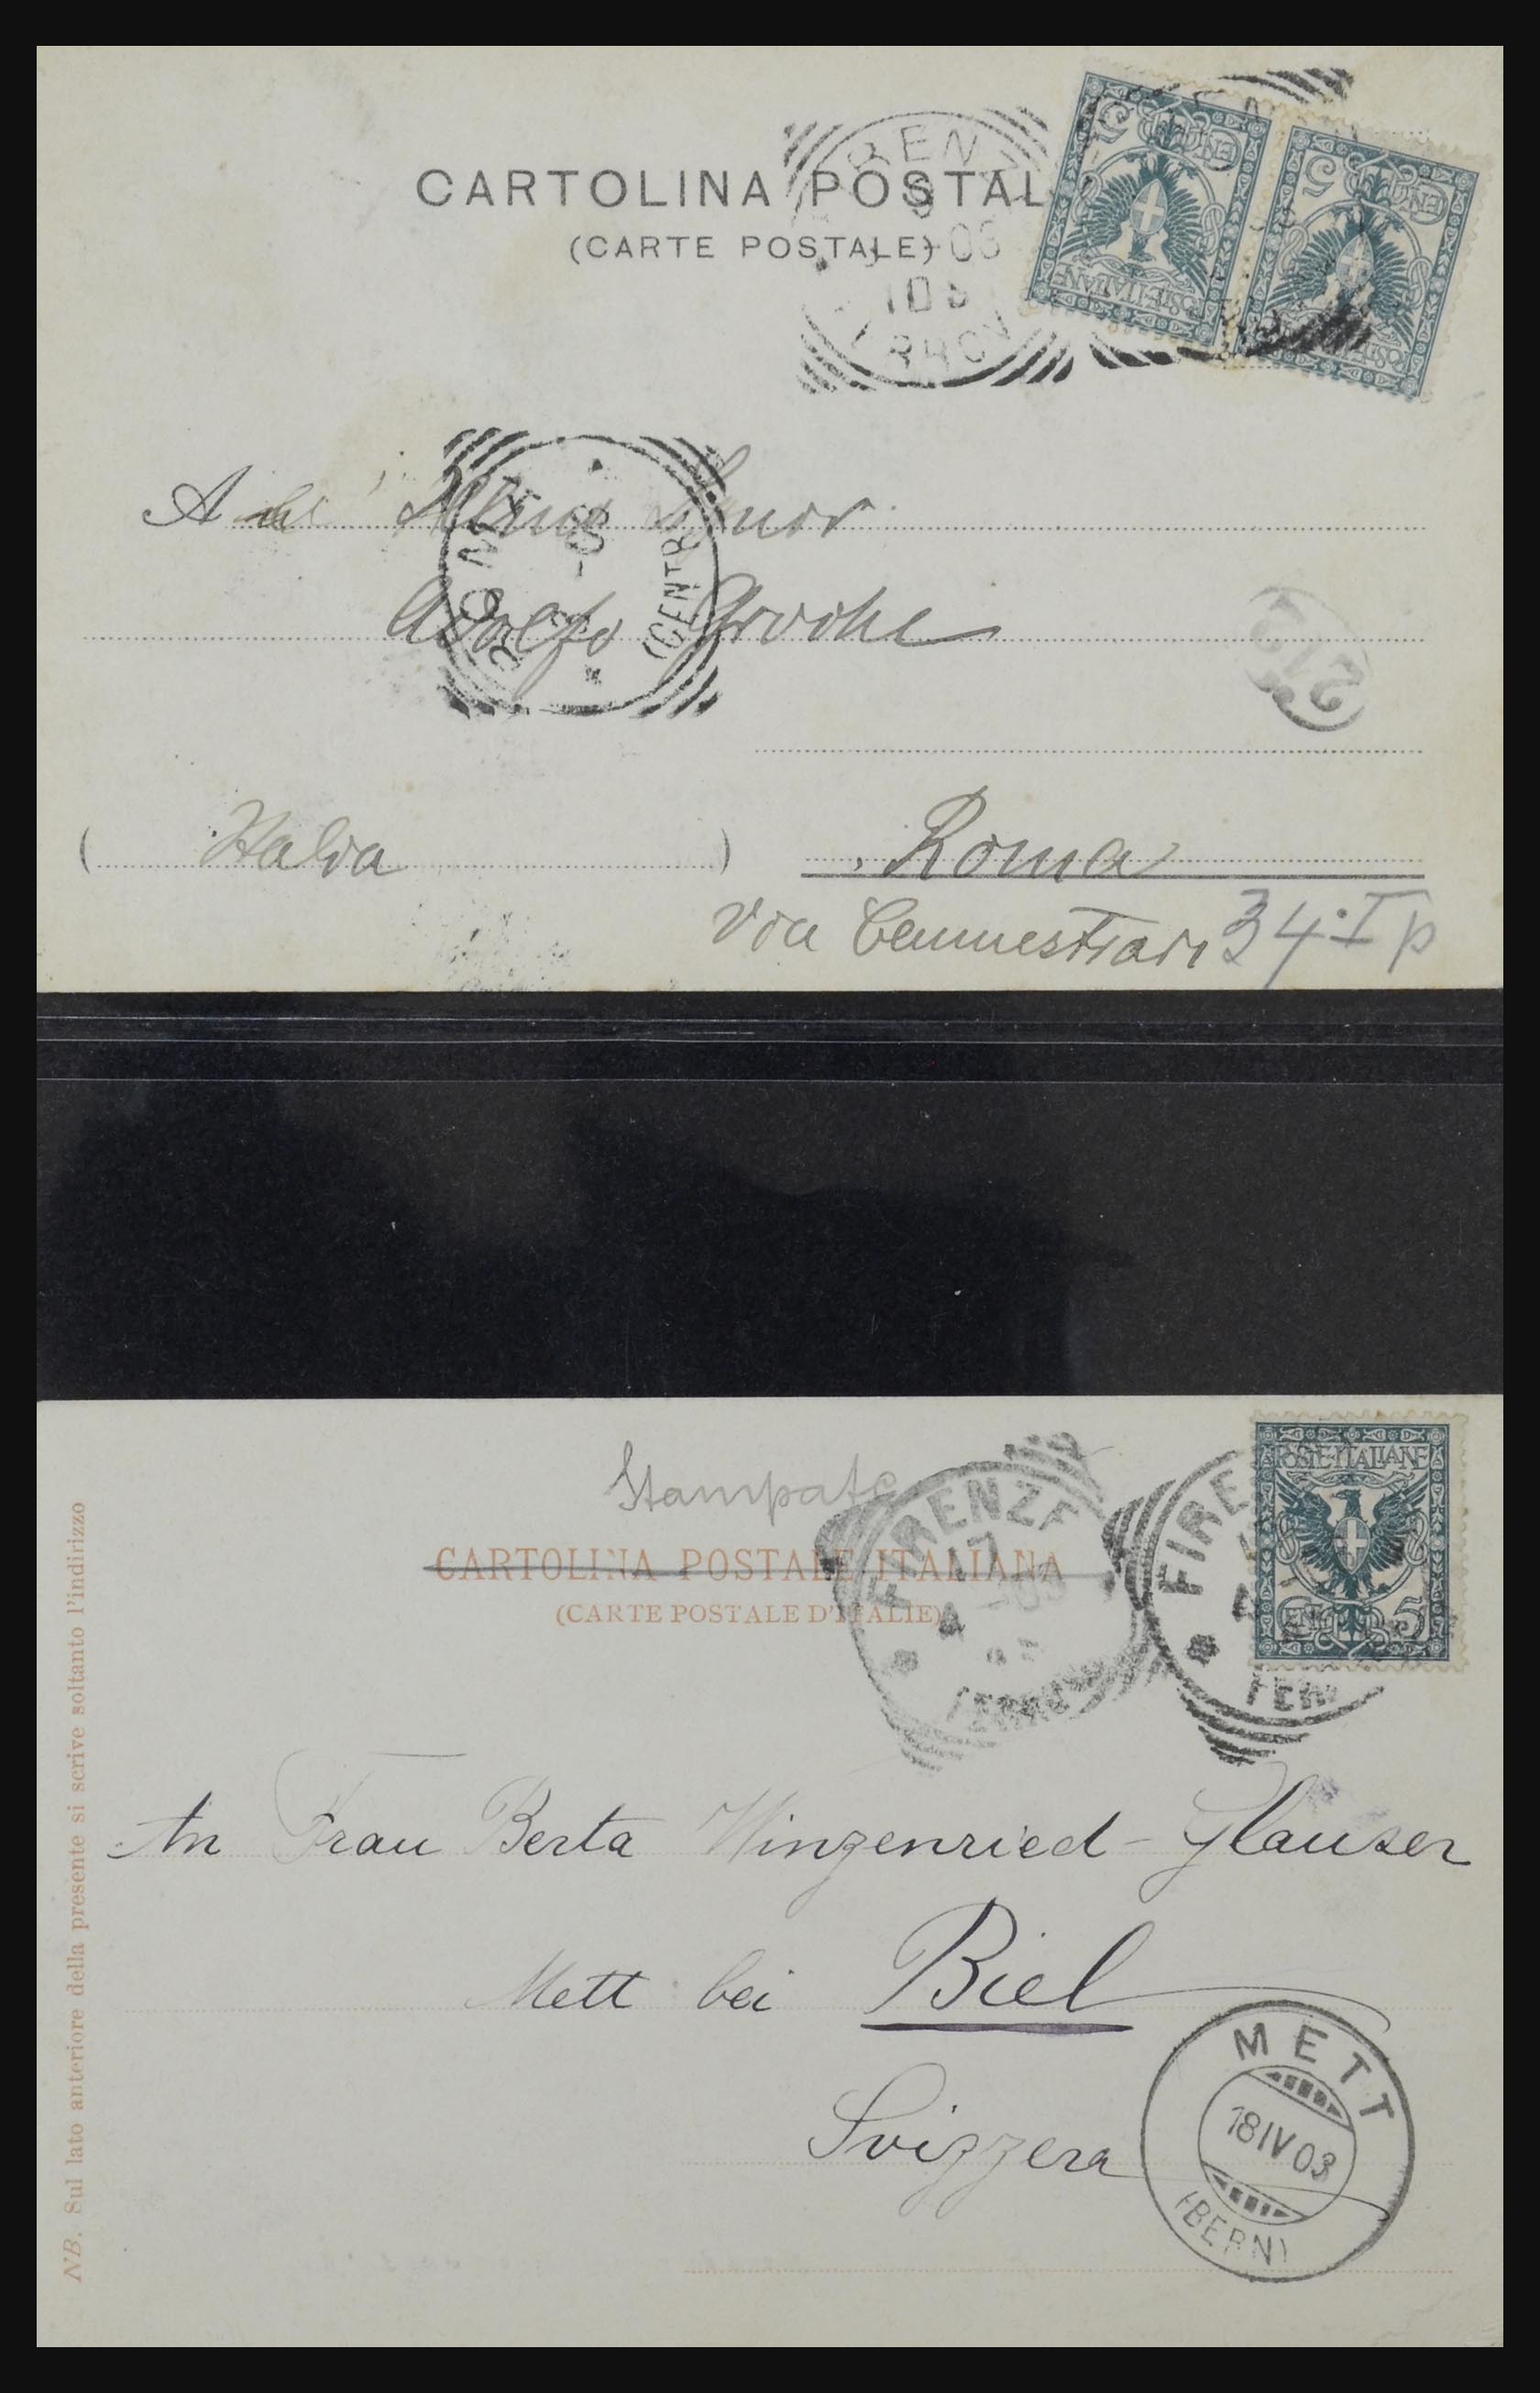 CARTOLINA POSTAL
(CARTE POSTALE)
POSTE ITALIANE
5
POSTE ITALIANE
5
A
Adolfo
ROMA
(CENTR
212
( Italia ) Roma
Via 34 I p
Stampate
CARTOLINA POSTALE ITALIANA
(CARTE POSTALE D'ITALIE)
FIRENZE
17
4 -03
FIRE
POSTE ITALIANE
CENT 5
NB. Sul lato anteriore della presente si scrive soltanto l'indirizzo
An Frau Berta Winzenried - Glauser
Mett bei Biel
Svizzera
METT
18 IV 03
(BERN)